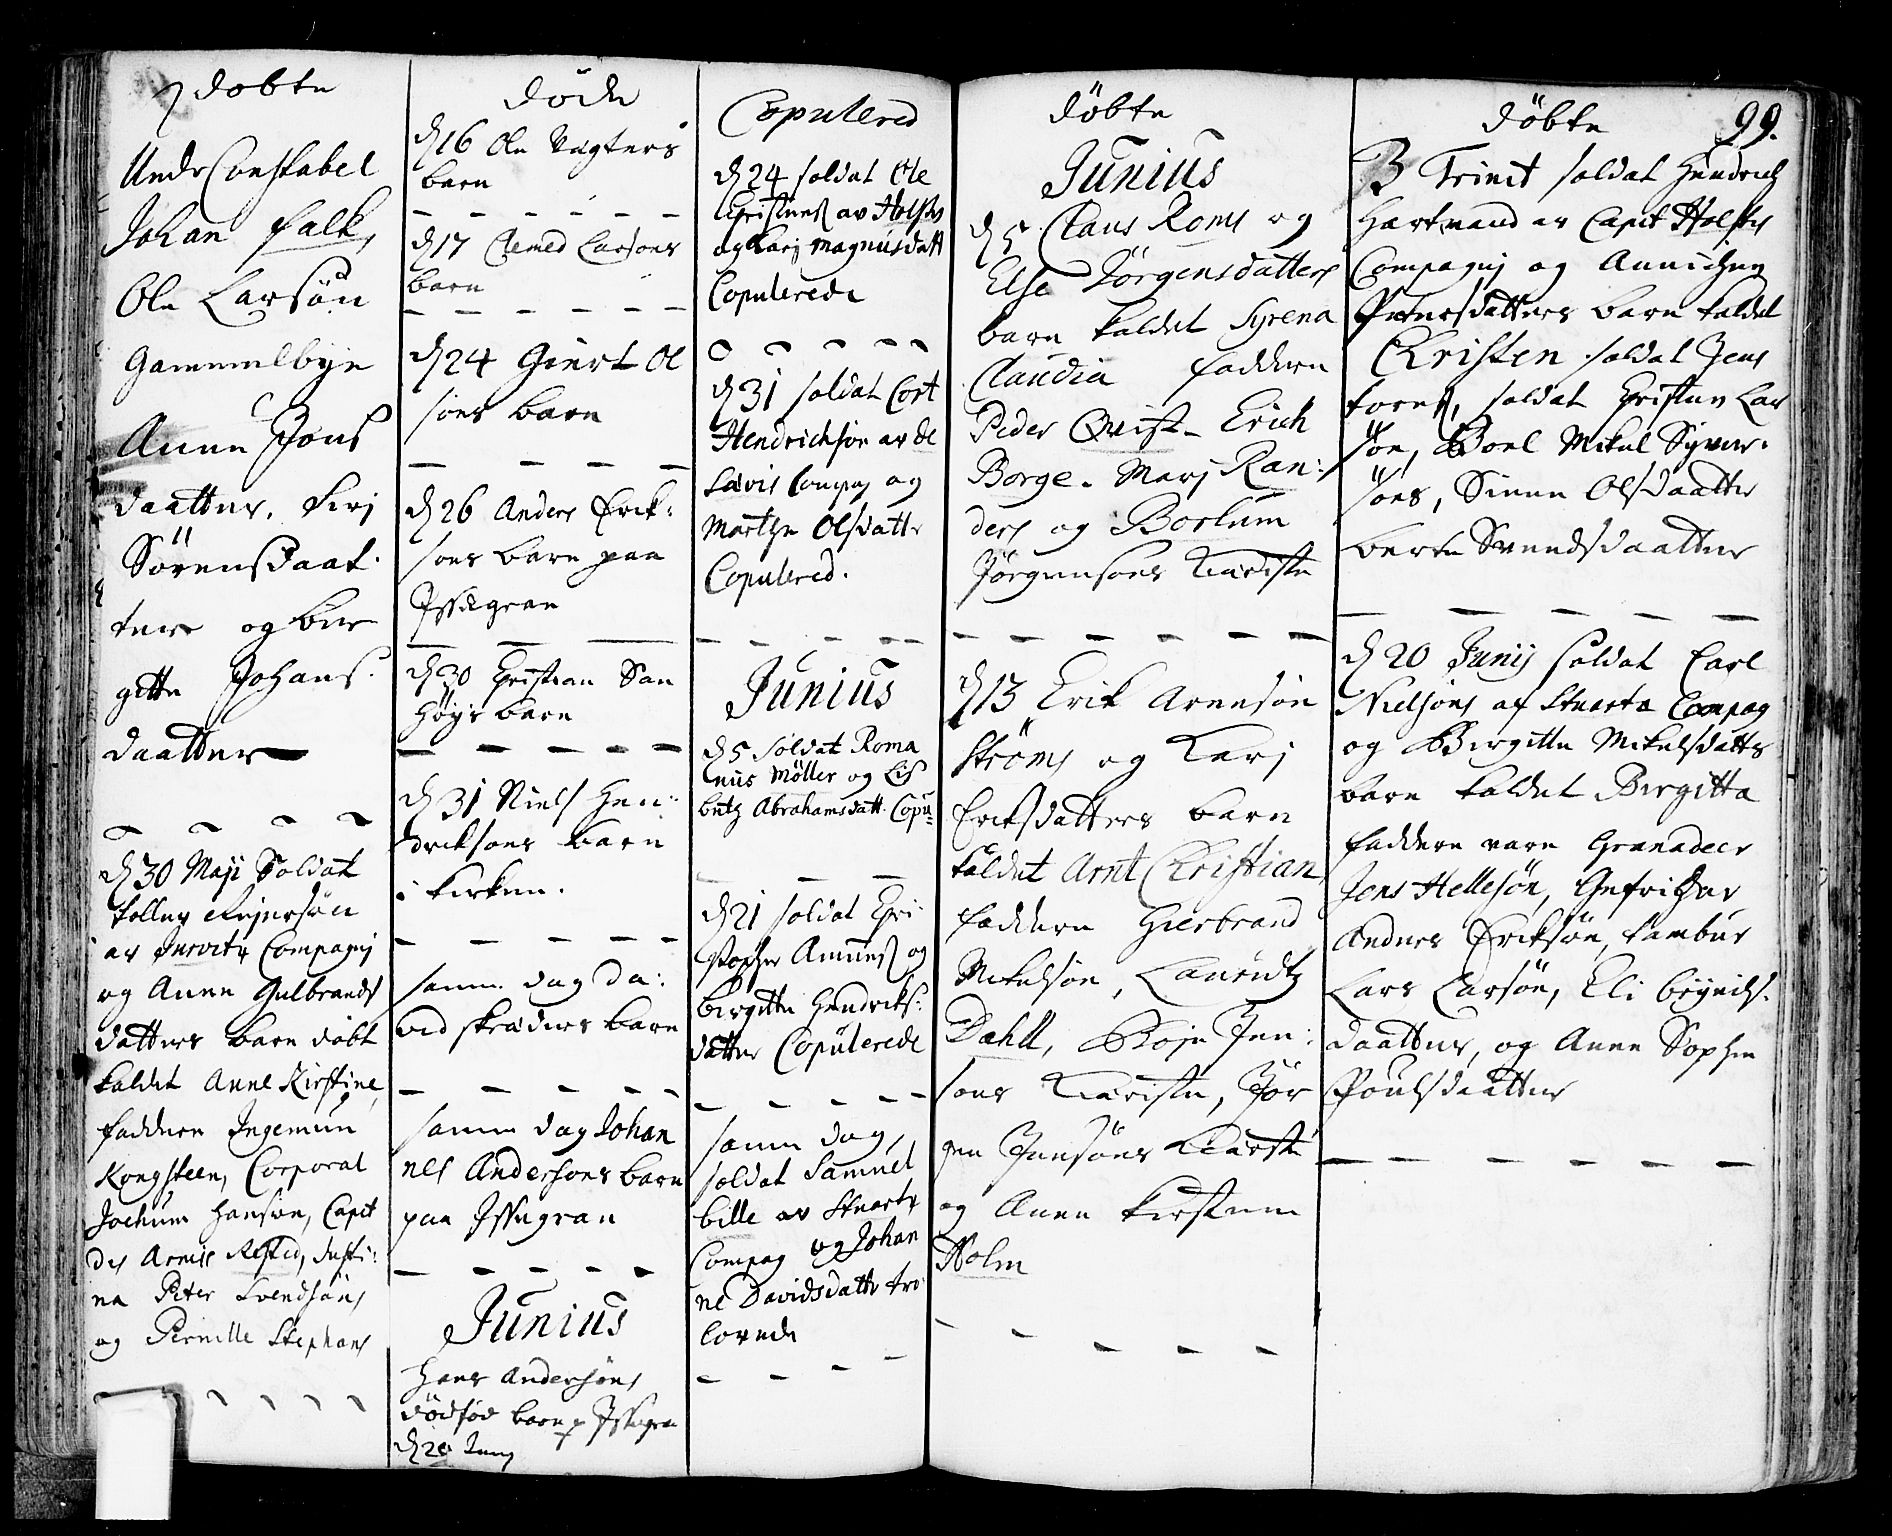 døbte
UndrConstabel
Johan falk,
Ole Larsøn
Gammelbye
Anne Jons
daatter, Kirj
Sørensdaat
ters og bir
gitte Johans
daatter
d 30 Maji Soldat
Compagnj
og Anne Gulbrands
datters barn døbt
kaldet Anne Kirstine,
faddern Ingemun
Kongsteen, Corporal
Jochum Hansøn, Capit
des Armis Rested, Justi:
na Peter Svendsøns
og Pernille Stephans
døde
d 16 Ole Vegters
barn
d 17 Clemed Larsøns
barn
d 24 Giert Ol
søns barn
d 26 Anders Erick:
søns barn paa
Issegran
d 30 Christian San
høys barn
d 31 Niels Hen:
dricksøns barn
i kirken.
samm dag Da:
vid skreders barn
samm dag Johan
nes Andersøns barn
paa Issegran
Junius
Hans Andersøns
dødfød barn p Issegran
d 20 Junj
Copulered
d 24 soldat Ole
Christens av Holstes
og Karj Magnusdatt
Copulerede
d 31 soldat Cort
Hendrichsøn av de
Compag og
Marthe Olsdattr
Copulered.
Junius
d 5 soldat Roma
nus Møller og Lis
beth Abrahamsdatt. Copu:
d 21 soldat Chri
stopher Amunds og
birgitte Hendricks:
datter Copulerede
samm dag,
soldat Samuel
bille av Stuarts
Compag og Johan
ne Davidsdattr tro
lovede
døbte
Junius
d 5 Claus Roms og
Else Jørgensdatters
barn kaldet Syrena
Claudia faddern
Peder Qvist - Erich
Borge. Marj Ran:
ders og Borlum
Jørgensøns Kieriste
d 13 Erik Arnesøn
Strøms og Karj
Eriksdatters barn
kaldet Arnt Christian,
faddern Gierbrand
Mikelsøn, Lauridtz
Dahll, Boje Jen:
søns Kieriste, Jør
gen Jensøns Kierste
og Anne Kirstine
Holm
døbte 99.
3 Trinit soldat Hendrich
Hartmand av Capit Holstes
Compagnj og Annichen
Petersdatters barn kaldet
Christen soldat Jens
fores, soldat Christen Lar
søn, Boel Mikel Syver:
søns, Sinne Olsdaatter
berte Svendsdaatter
d 20 Junij soldat Carl
Nielsøns af Stuarts Compag
og Birgitte Mikelsdatters
barn kaldet Birgitta
faddern vare Granadeer
Jens Hellesøn, Gefridher
Anders Eriksøn, tambur
Lars Larsøn, Eli
daatter, og Anne Sophie
Poulsdaatter